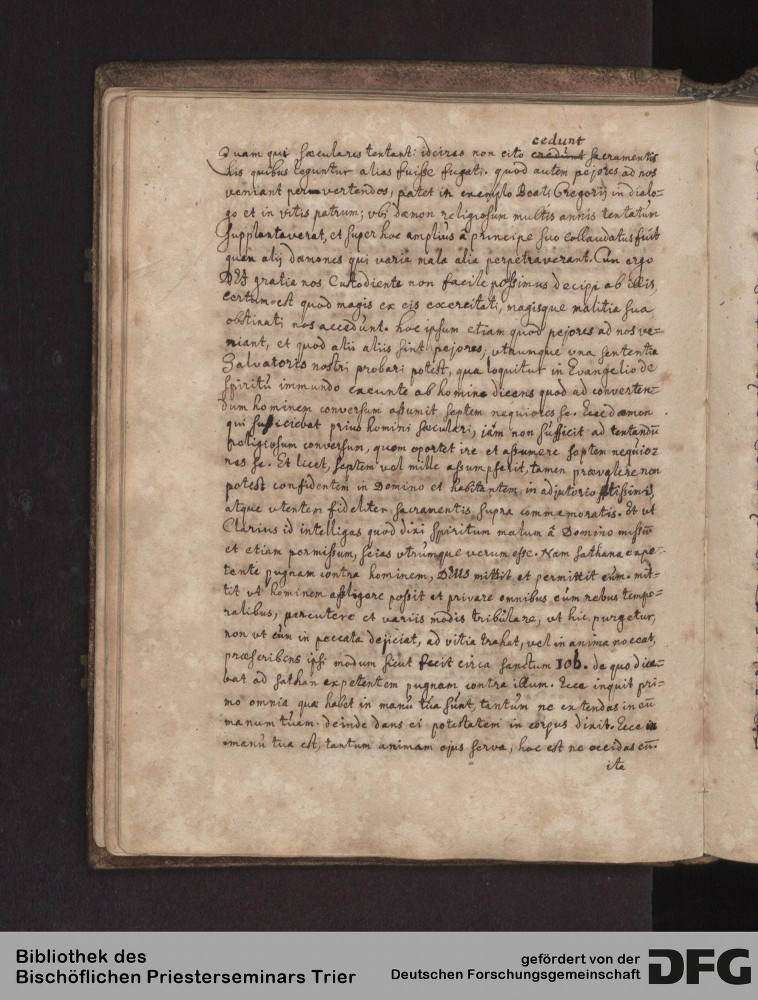 cedunt
Quam qui sæculares tentant: idcirco non cito credunt sacramentis
his quibus leguntur alias fuisse fugati. quod autem pejores ad nos
veniant pervertendos, patet in exemplo Beati Gregorij in dialo=
go et in vitis patrum; vbi dæmon religiosum multis annis tentatum
supplantaverat, et super hoc amplius â principe suo collaudatus fuit
quam alij dæmones qui varia mala alia perpetraverant. Cum ergo
DEI gratia nos Custodiente non facile possimus decipi ab illis,
certum est quod magis ex eis exercitati, magisque malitia sua
obstinati nos accedunt. hoc ipsum etiam quod pejores ad nos ve=
niant, et quod alii aliis sint pejores, vtrumque vna sententia
Salvatoris nostri probari potest, qua loquitur in Evangelio de
spiritu immundo exeunte ab homine dicens quod ad converten=
dum hominem conversum assumit septem nequiores se. Ecce dæmon
qui sufficiebat prius homini sæculari, iâm non sufficit ad tentandū
religiosum conversum, quem oportet ire et assumere septem nequio=
res se. Et licet, septem vel mille assumpserit, tamen prævalere non
potest confidentem in Domino et habitantem in adjutorio altissimi,
atque vtentem fideliter sacramentis supra commemoratis. Et vt
Clarius id intelligas quod dixi spiritum malum â Domino missū
et etiam permissum, scias vtrumque verum esse. Nam sathana expe=
tente pugnam contra hominem, DEUS mittit et permittit eum. mit=
tit vt hominem affligere possit et privare omnibus eum rebus tempo=
ralibus, percutere et variis modis tribulare, vt hic purgetur,
non vt eum in peccata dejiciat, ad vitia trahat, vel in anima noceat,
præscribens ipsi modum sicut fecit circa sanctum IOB. de quo dice=
bat ad sathan expetentem pugnam contra illum. Ecce inquit pri=
mo omnia quæ habet in manu tua sunt, tantum ne extendas in eū
manum tuam. deinde dans ei potestatem in corpus dixit. Ecce in
manu tua est, tantum animam ejus serva, hoc est ne occidas eū.
ita
Bibliothek des
Bischöflichen Priesterseminars Trier
gefördert von der
Deutschen Forschungsgemeinschaft
DFG